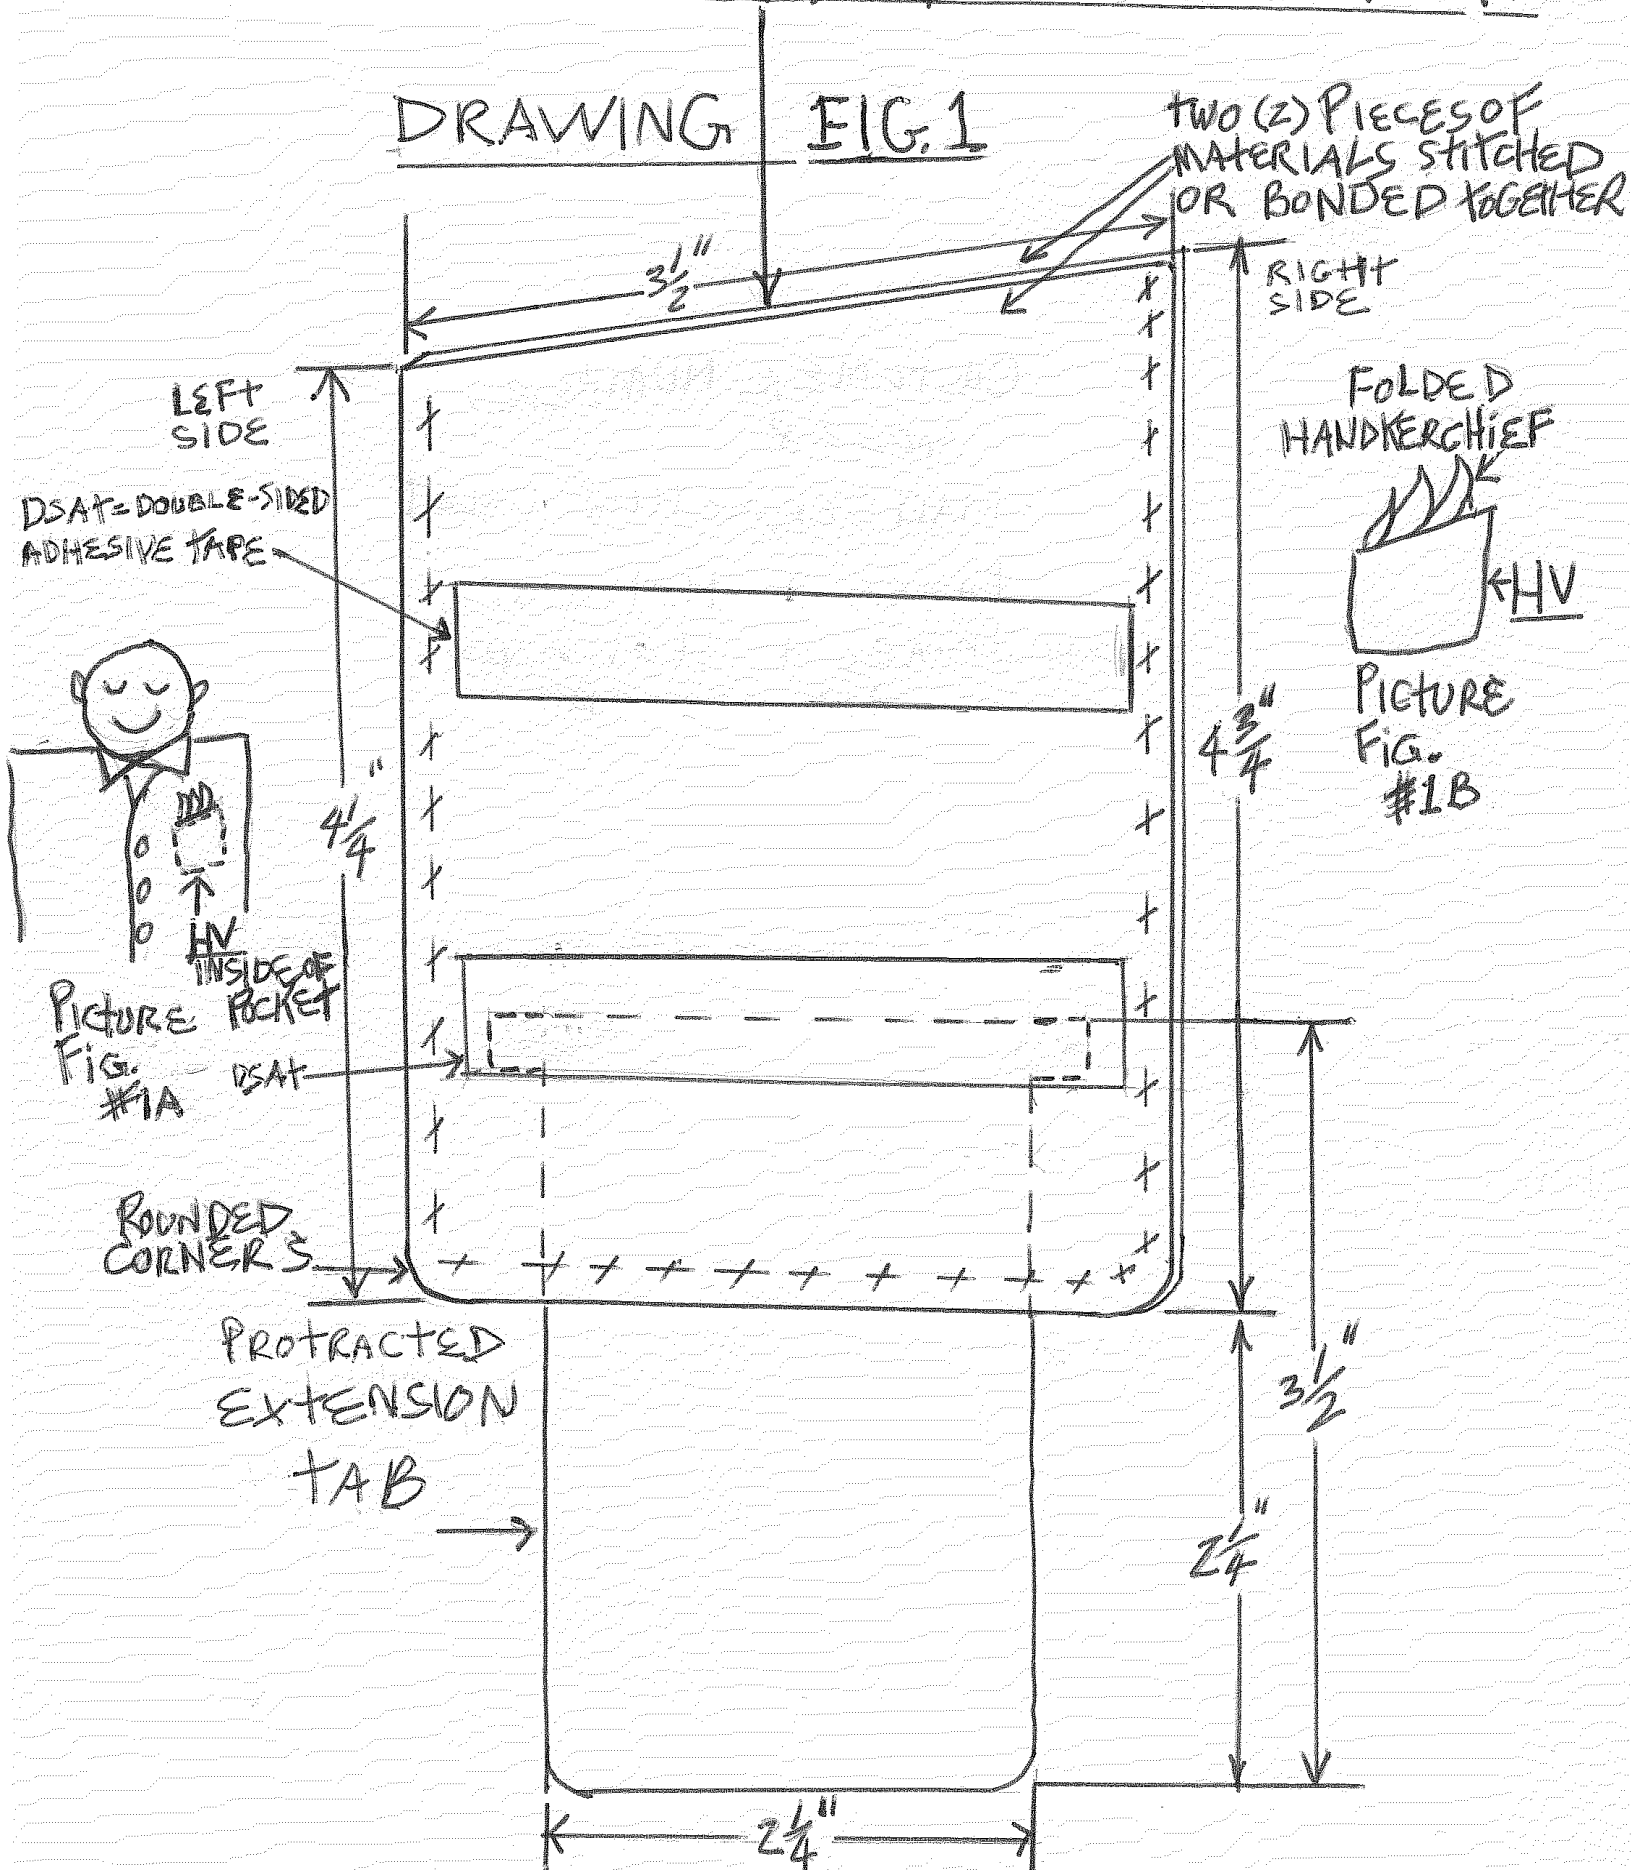 DRAWING FIG. 1
TWO (2) PIECES OF
MATERIALS STITCHED
OR BONDED TOGETHER
3 1/2"
RIGHT
SIDE
LEFT
SIDE
FOLDED
HANDKERCHIEF
DSAT = DOUBLE-SIDED
ADHESIVE TAPE
HV
PICTURE
FIG.
#1B
4 3/4"
4 1/4"
HV
INSIDE OF
POCKET
PICTURE
FIG.
#1A
DSAT
ROUNDED
CORNERS
PROTRACTED
EXTENSION
TAB
3 1/2"
2 1/4"
2 1/4"